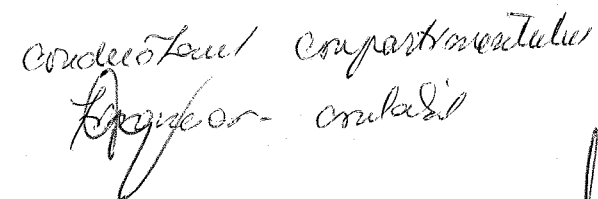 conducătorul compartimentului
financiar-contabil